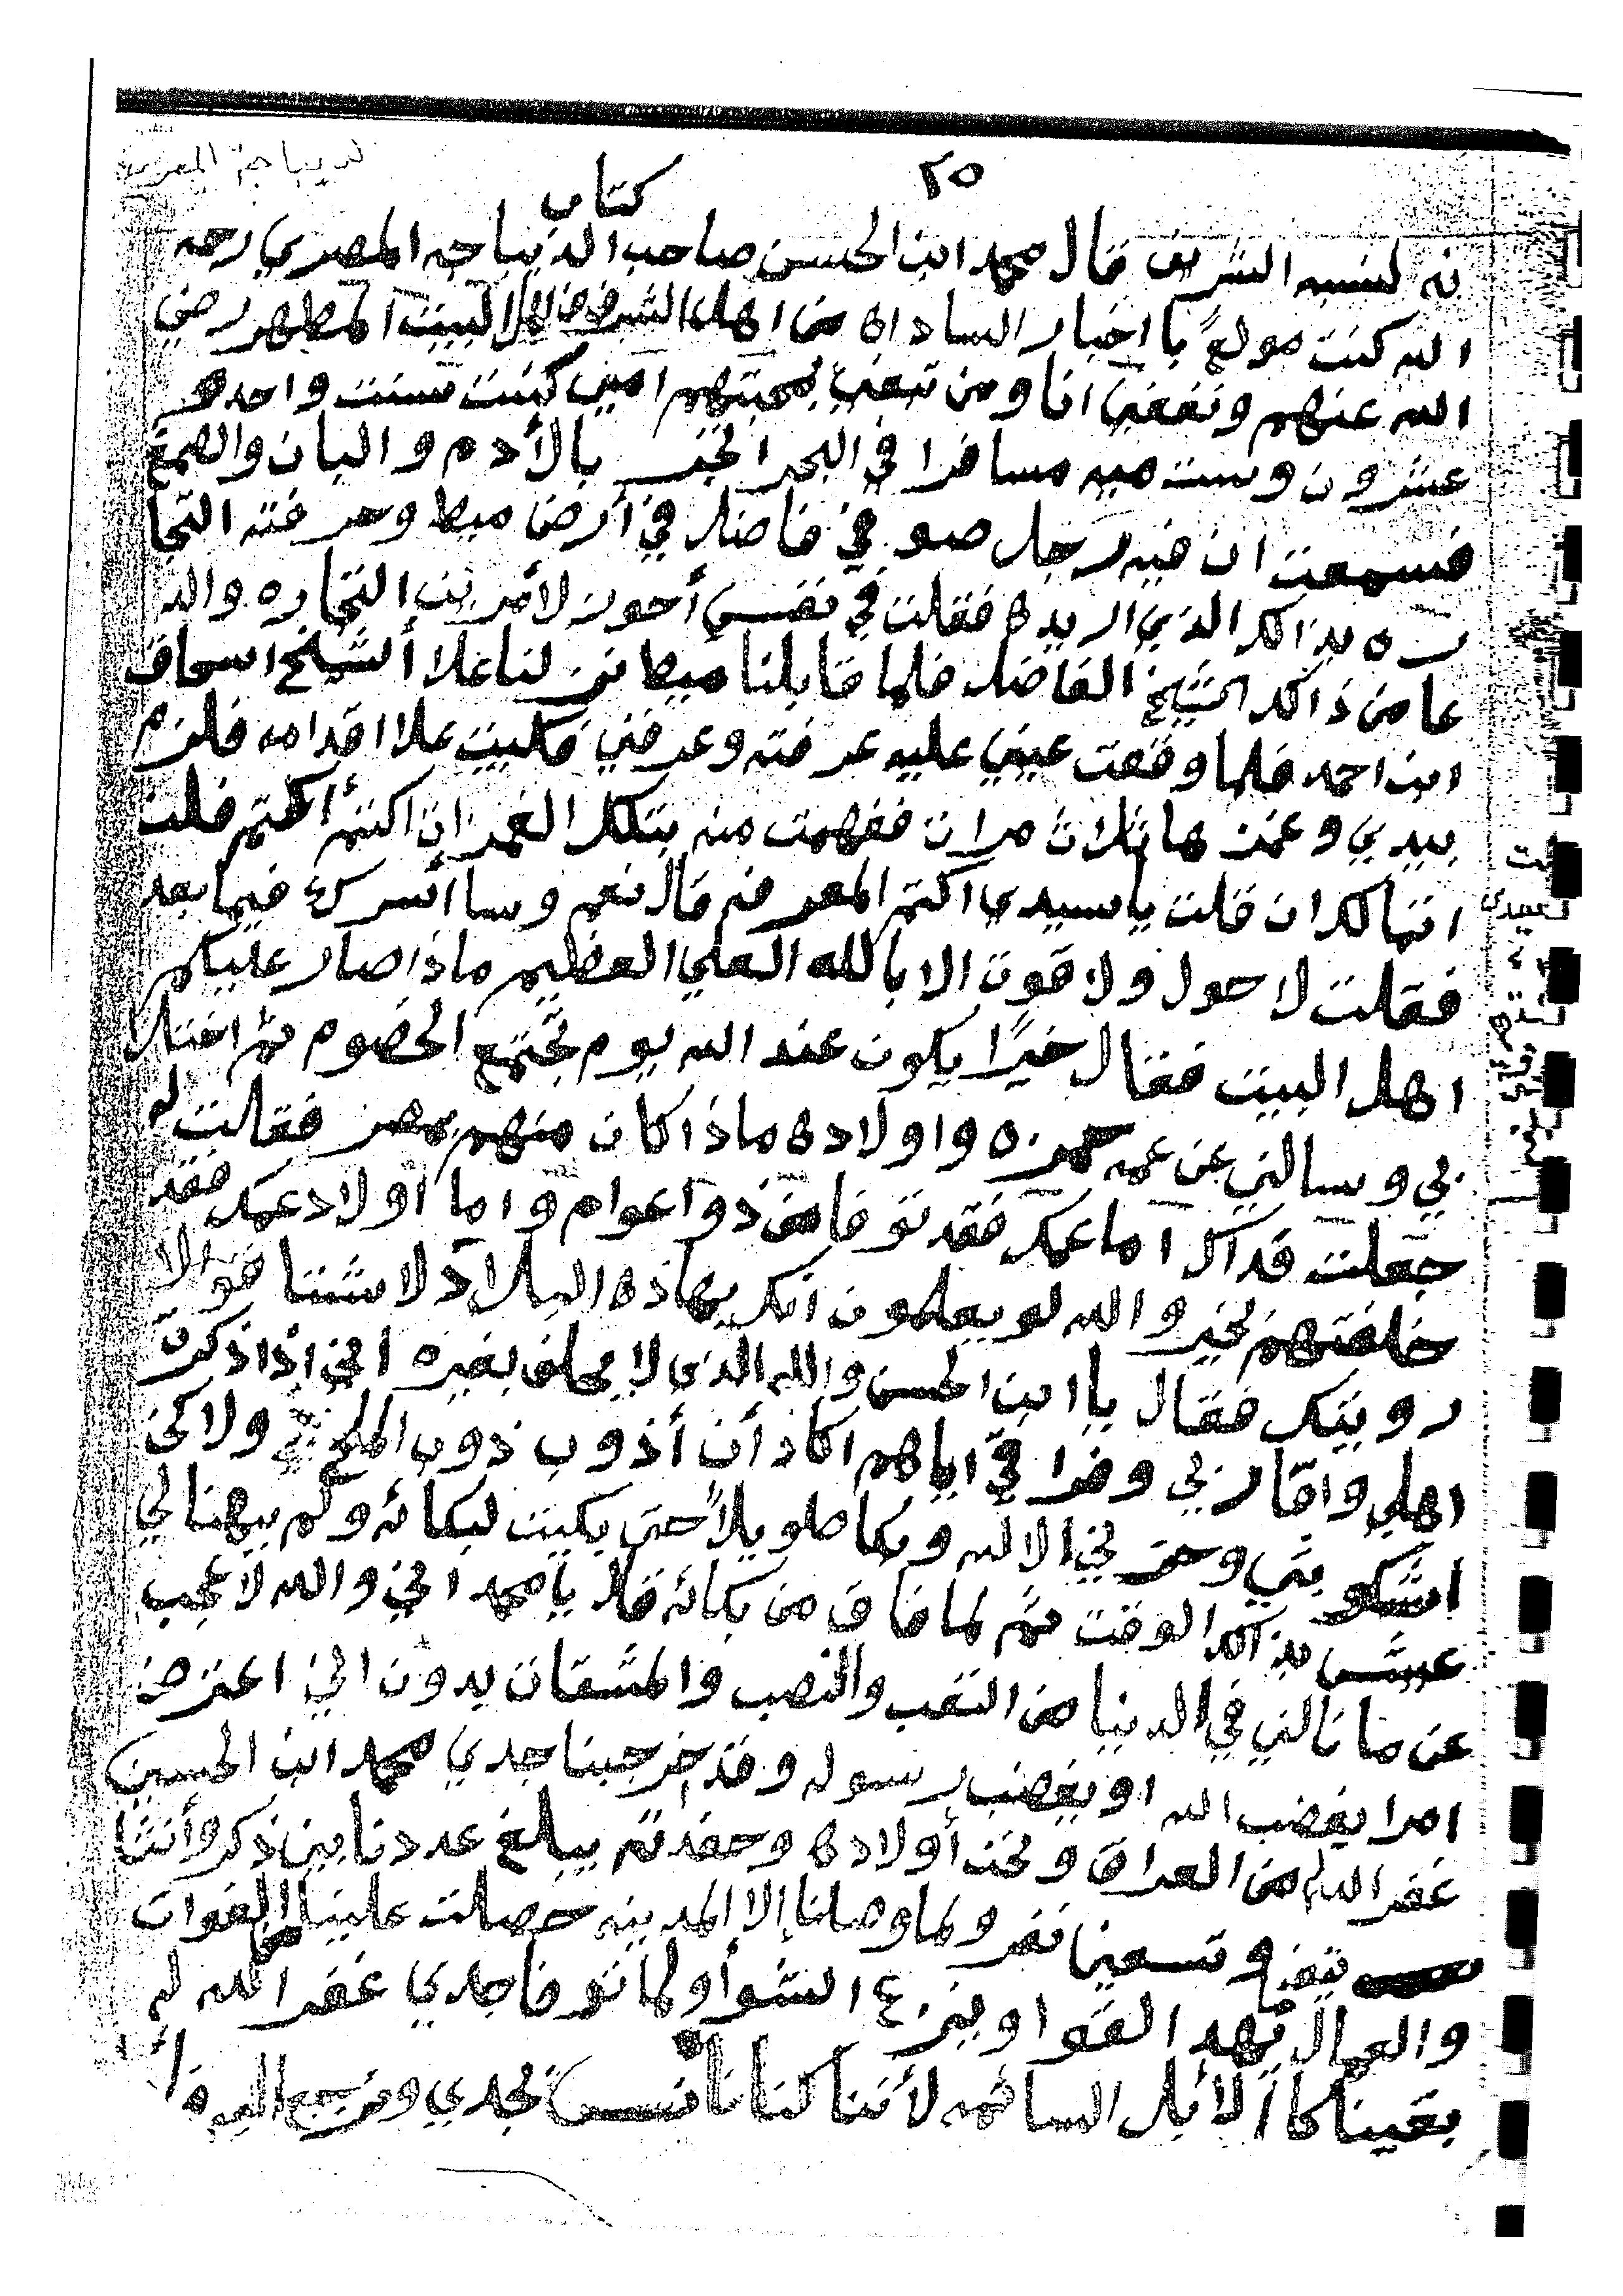 لديباجة المصرية
٢٥
كتاب
نه لنسبه الشريف قال محمد ابن الحسن صاحب الديباجه المصري رحمه
الله كنت مولعً باخبار السادات من اهل الشرف من اهل البيت المطهر رضي
الله عنهم ونفعني انا ومن تبعني بمحبتهم امين كنت سنت واحده
عشرون وست ميه مسافرا في البحر بالأدم والبان والصمغ
فسمعت ان فيه رجل صوفي فاضل في أرض ميط وحرفته التجا
ره بذالك الذي اريده فقلت في نفسي أحوز لأمرين التجاره والد
عا من ذالك الشيخ الفاضل فلما قابلنا ميط نزلنا علا ألشيخ اسحاق
ابن احمد فلما وقعت عيني عليه عرفته وعرفني فكبيت علا اقدامه فلزم
بيدي وغمزها ثلاث مرات ففهمت منه بتلك الغمزات اكتم أكتم فلت
انتهالك ان قلت يا سيدي اكتم المعرفه قال نعم وسا أسرك فيما بعد
فقلت لا حول ولا قوت الا بالله العلي العظيم ماذا صار عليكم
اهل البيت فقال خيرًا يكون عند الله يوم تجتمع الخصوم ثم اختلا
بي وسالني عن عمه حمزه واولاده ماذا كان منهم بمصر فقلت له
جعلت فداك اما عمك فقد توفا من ذو اعوام واما أولاد عمك فقد
خلفتهم بخير والله لو يعلمون انك بهاذه البلاد لاشتاقو الا
رويتك فقال يا ابن الحسن والله الذي لا يحلف بغيره اني اذا ذكرت
اهلي واقاربي وفراقي اياهم اكاد أن أذوب ذوب الملح ولاكن
اشكو بثي وحزني الا الله وبكا طويلاً حتى بكيت لبكائه ولم يهنا لي
عيش بذالك الوقت ثم لما فاق من بكائه قال يا محمد اني والله لا عجب
عن ما نالني في الدنيا من التعب والنصب والمشقات بدون اني اعترض
امرا يغضب الله او يغضب رسوله وقد خرج بنا جدي محمد ابن الحسين
غفر الله له من العراق ونحن أولاده وحفدته يبلغ عددنا بين ذكر وأنثا
نيف وتسعين نفر ولما وصلنا إلا المدينه حصلت علينا الغوات
والعمال تهد القوا وينزع الشوا ولما توفا جدي غفر الله له
بقينا كا ألابل السائمه لأننا كنا نانس بجدي ونرجع اليه